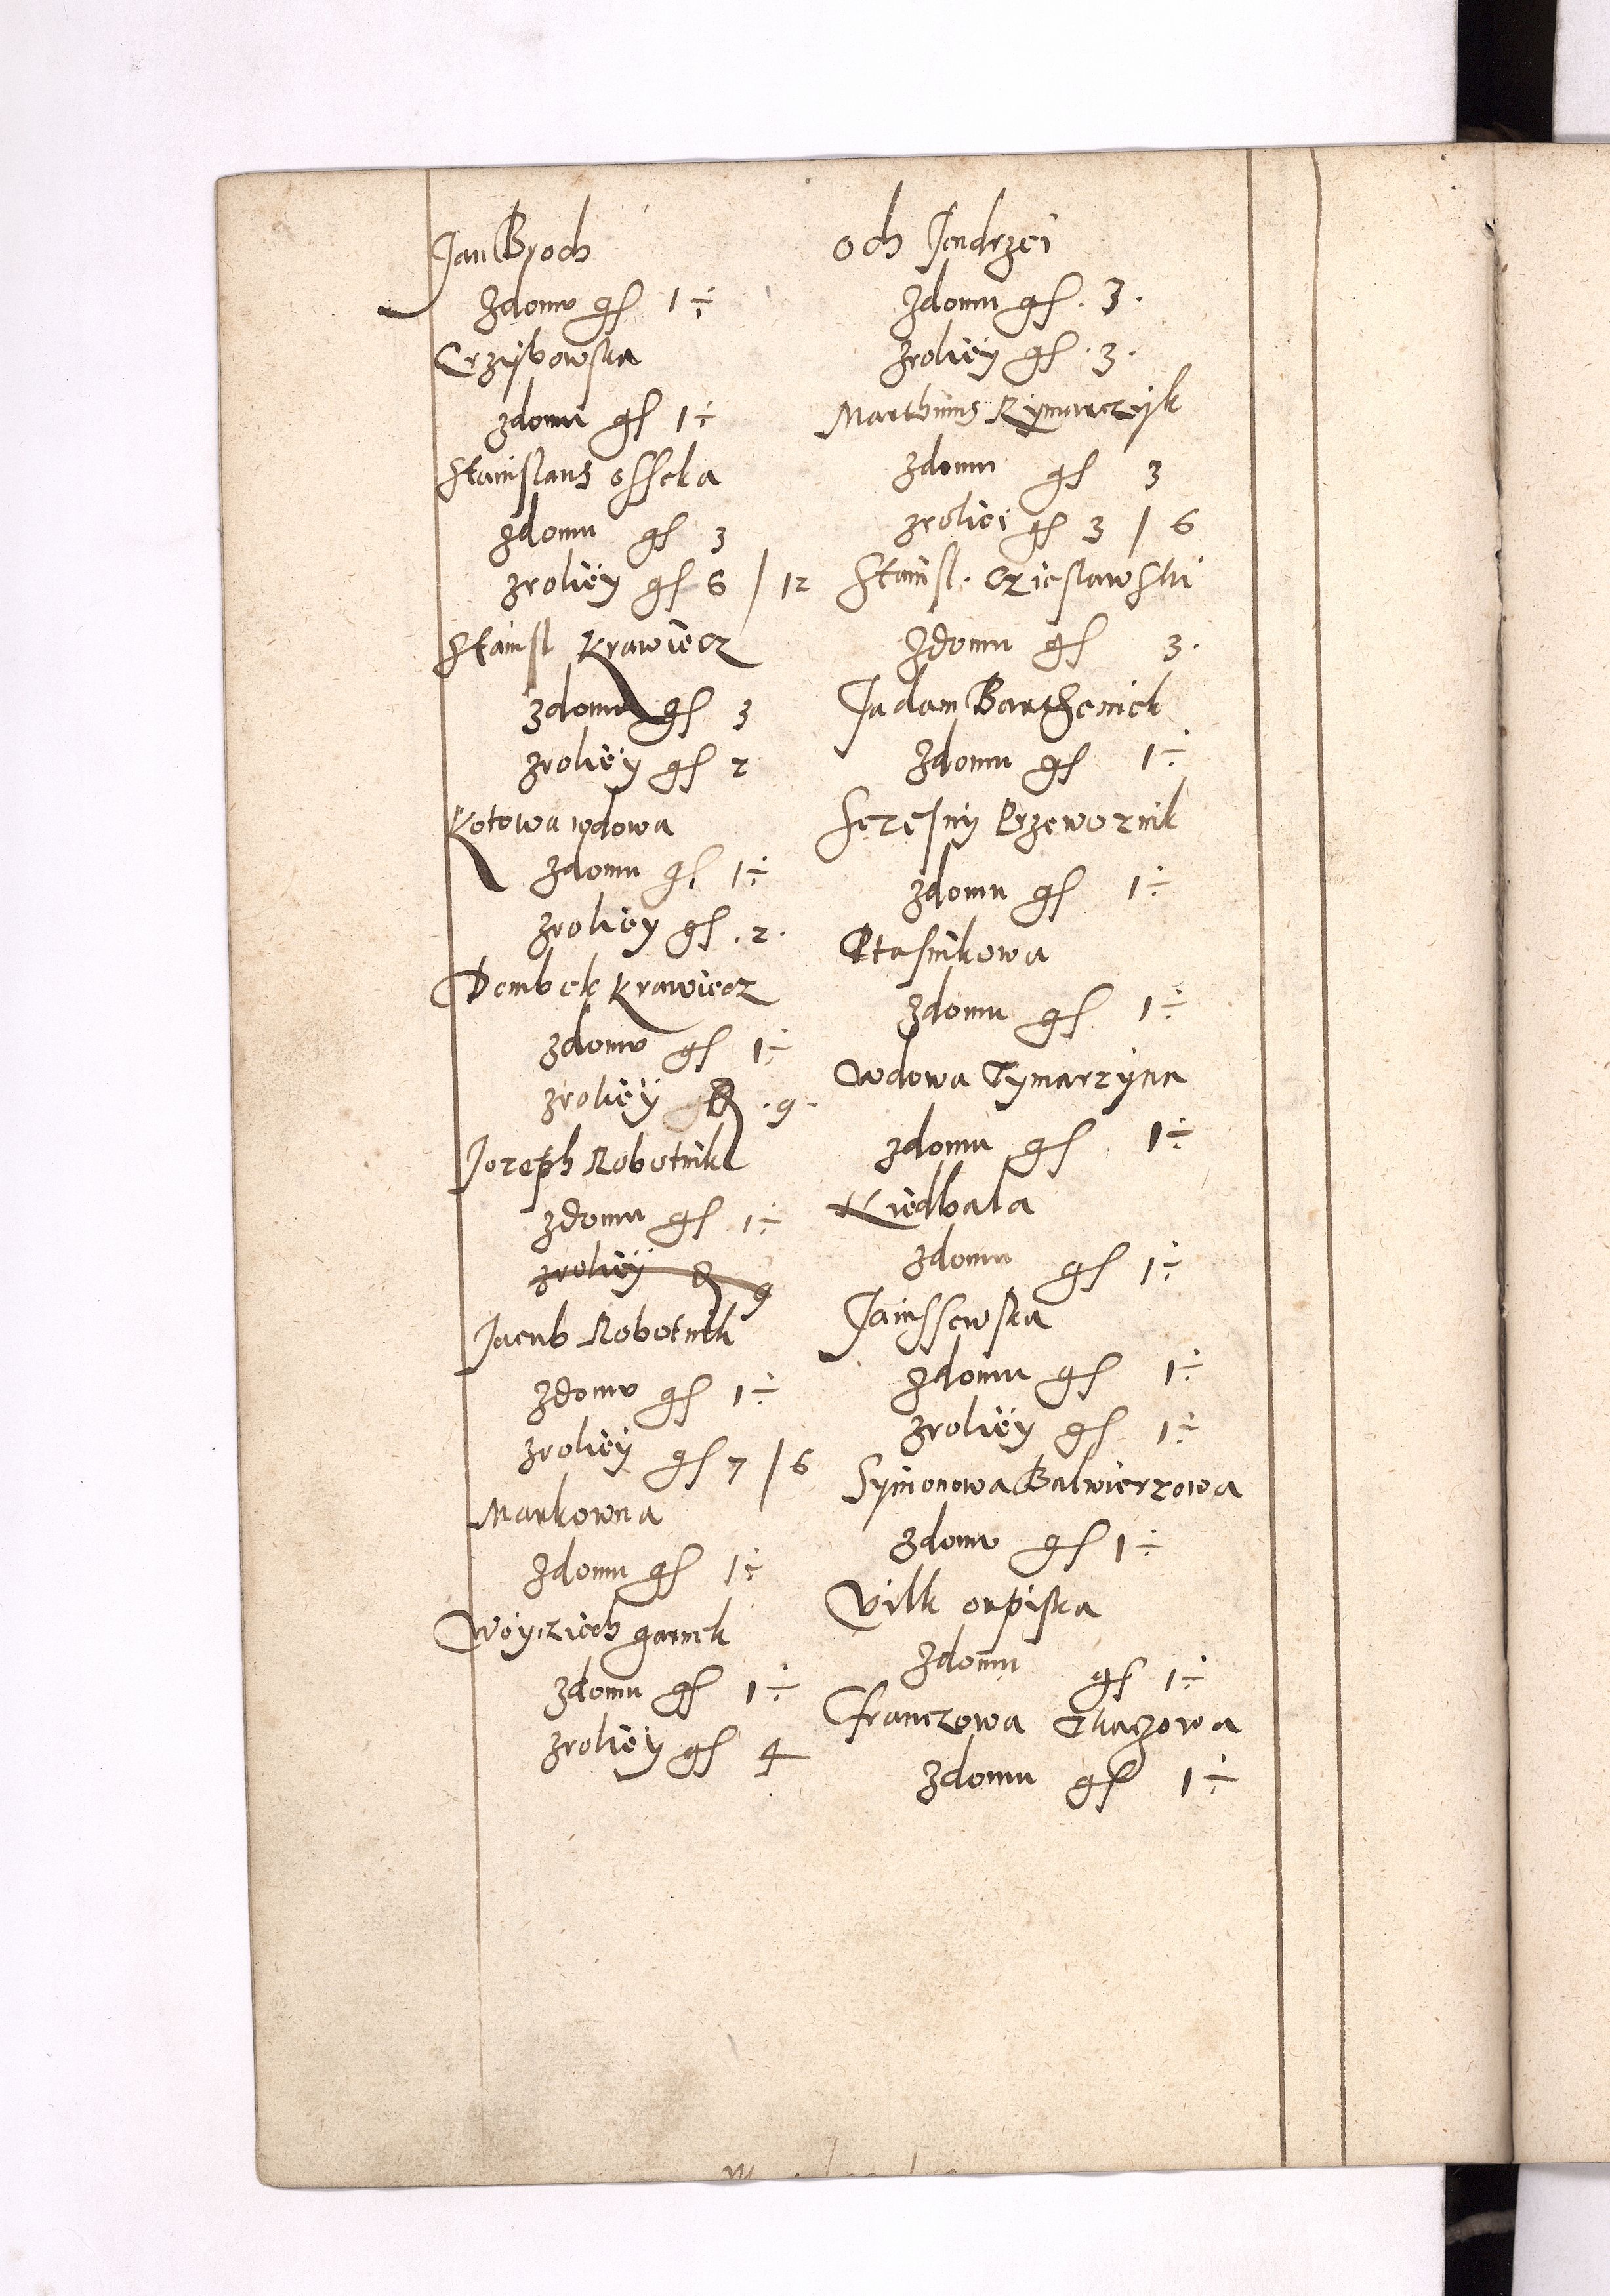 Jan Broch
zdomu gſ 1 ÷
Crziſkowſka
zdomu gſ 1 ÷
Staniſlaus oſſeka
zdomu gſ 3
zroliey gſ 6 / 12
Staniſl Krawiecz
zdomu gſ 3
zroliëy gſ 2
Kotowa wdowa
zdomu gſ 1 ÷
zroliey gſ . 2 .
Dembek Krawiecz
zdomu gſ 1 ÷
zroliëÿ . 9 .
Jozeph Robotnik
zdomu gſ 1 ÷
zroliëÿ 9
Jacub Robotnik
zdomu gſ 1 ÷
zroliëÿ gſ 7 / 6
Markowna
zdomu gſ 1 ÷
Woÿcziech garnek
zdomu gſ 1 ÷
zroliëy gſ 4
och Jendrzei
zdomu gſ . 3 .
zroliëÿ gſ . 3 .
Marthinus Rÿmarczÿk
zdomu gſ 3
zroliei gſ 3 / 6
Staniſl . Czieſlawſki
zdomu gſ 3 .
Jadam
zdomu gſ 1 ÷
Przewoznik
zdomu gſ 1 ÷
Ptaſnikowa
zdomu gſ 1 ÷
wdowa
zdomu gſ 1 ÷
Kiedbala
zdomu gſ 1 ÷
Janiſſewſka
zdomu gſ 1 ÷
zroliëy gſ 1 ÷
Sÿmonowa Balwierzowa
zdomu gſ 1 ÷
Vilk
zdomu gſ 1 ÷
franczowa Tkaczowa
zdomu gſ 1 ÷